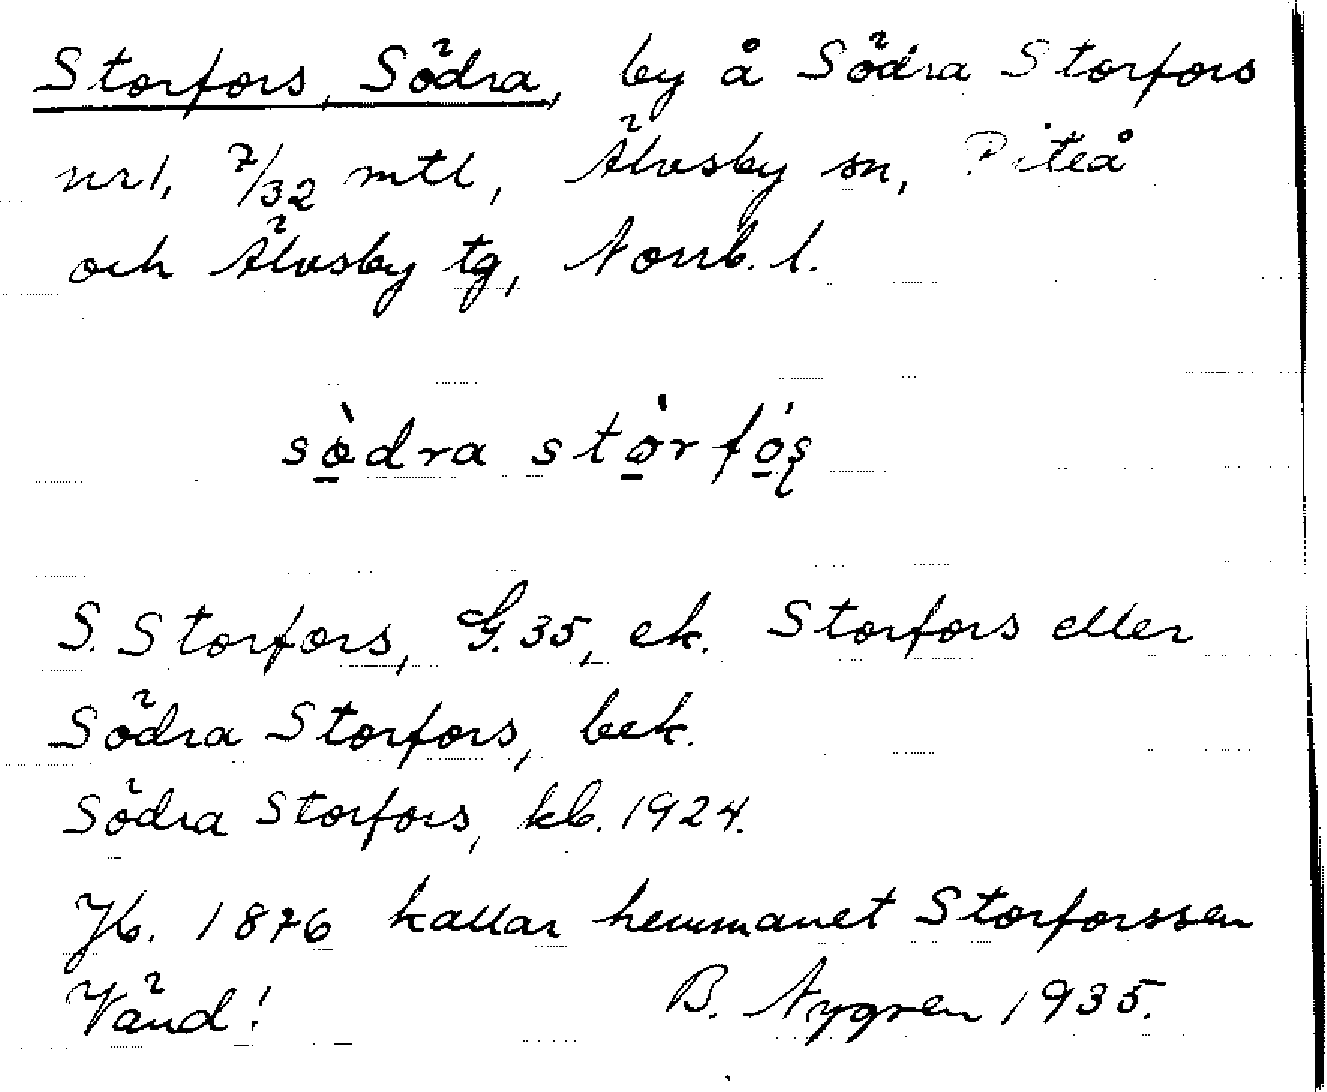 Storfors, Södra, by å Södra Storfors
nr 1, 7/32 mtl, Älvsby sn, Piteå
och Älvsby tg, Norrb. l.
sò̱dra stò̱rfó̱ʂ
S. Storfors, G. 35, ek. Storfors eller
Södra Storfors, bek.
Södra Storfors, kb. 1924.
Jb. 1876 kallar hemmanet Storforssen
Vänd! B. Nygren 1935.